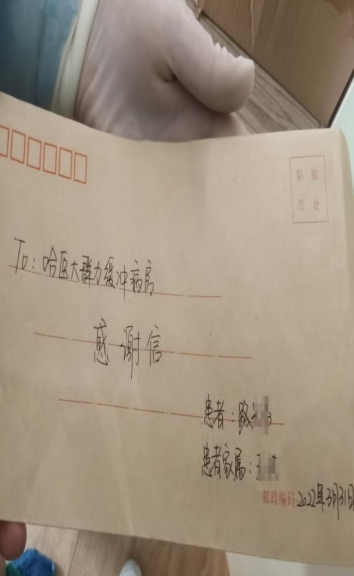 贴邮
票处
To: 哈医大群力缓冲病房
感谢信
患者:
患者家属:
邮政编码
2022年3月31日